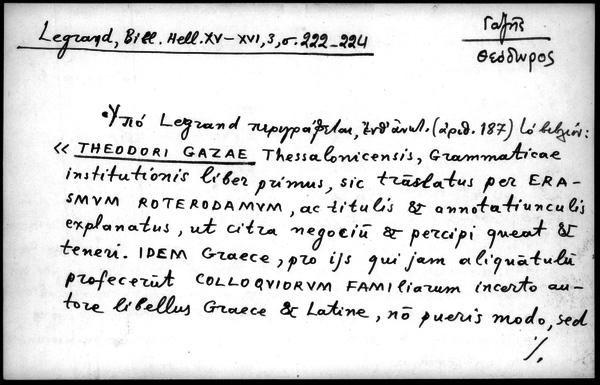 Legrand, Bibl. Hell. XV–XVI, 3, σ. 222–224
Γαζῆς
Θεόδωρος
Ὑπό Legrand περιγράφεται, ἔνθ' ἀνωτ. (ἀριθ. 187) τό βιβλίον:
« THEODORI GAZAE Thessalonicensis, Grammaticae
institutionis liber primus, sic trāslatus per ERA-
SMVM ROTERODAMVM, ac titulis & annotatiunculis
explanatus, ut citra negociū & percipi queat &
teneri. IDEM Graece, pro ijs qui jam aliquātulū
profecerūt COLLOQVIORVM FAMILiarum incerto au-
tore libellus Graece & Latine, nō pueris modo, sed
./.